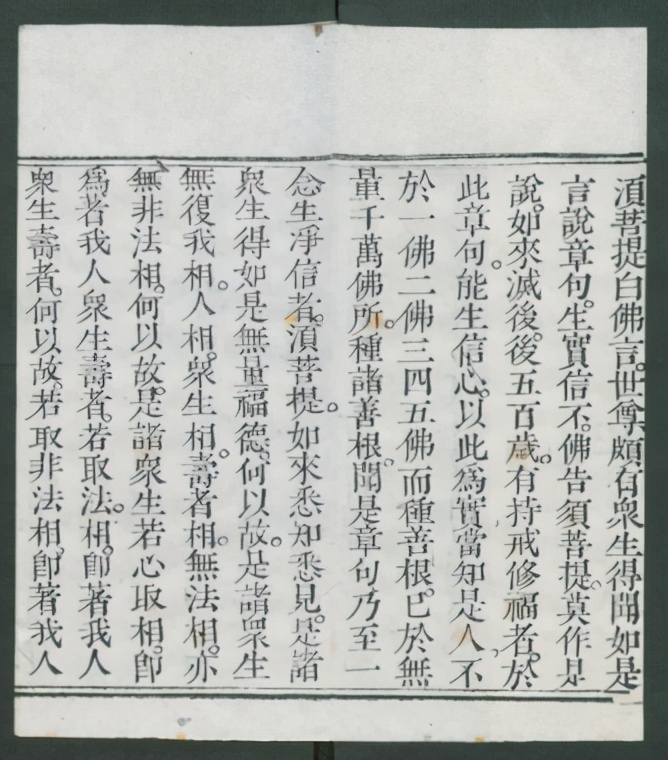 須菩提白佛言。世尊。頗有衆生得聞如是
言說章句。生實信不。佛告須菩提。莫作是
說。如來滅後。後五百歲。有持戒修福者。於
此章句。能生信心。以此爲實。當知是人。不
於一佛二佛三四五佛而種善根。已於無
量千萬佛所。種諸善根。聞是章句。乃至一
念生淨信者。須菩提。如來悉知悉見。是諸
衆生得如是無量福德。何以故。是諸衆生
無復我相。人相。衆生相。壽者相。無法相。亦
無非法相。何以故。是諸衆生若心取相。即
爲著我人衆生壽者。若取法相。即著我人
衆生壽者。何以故。若取非法相。即著我人